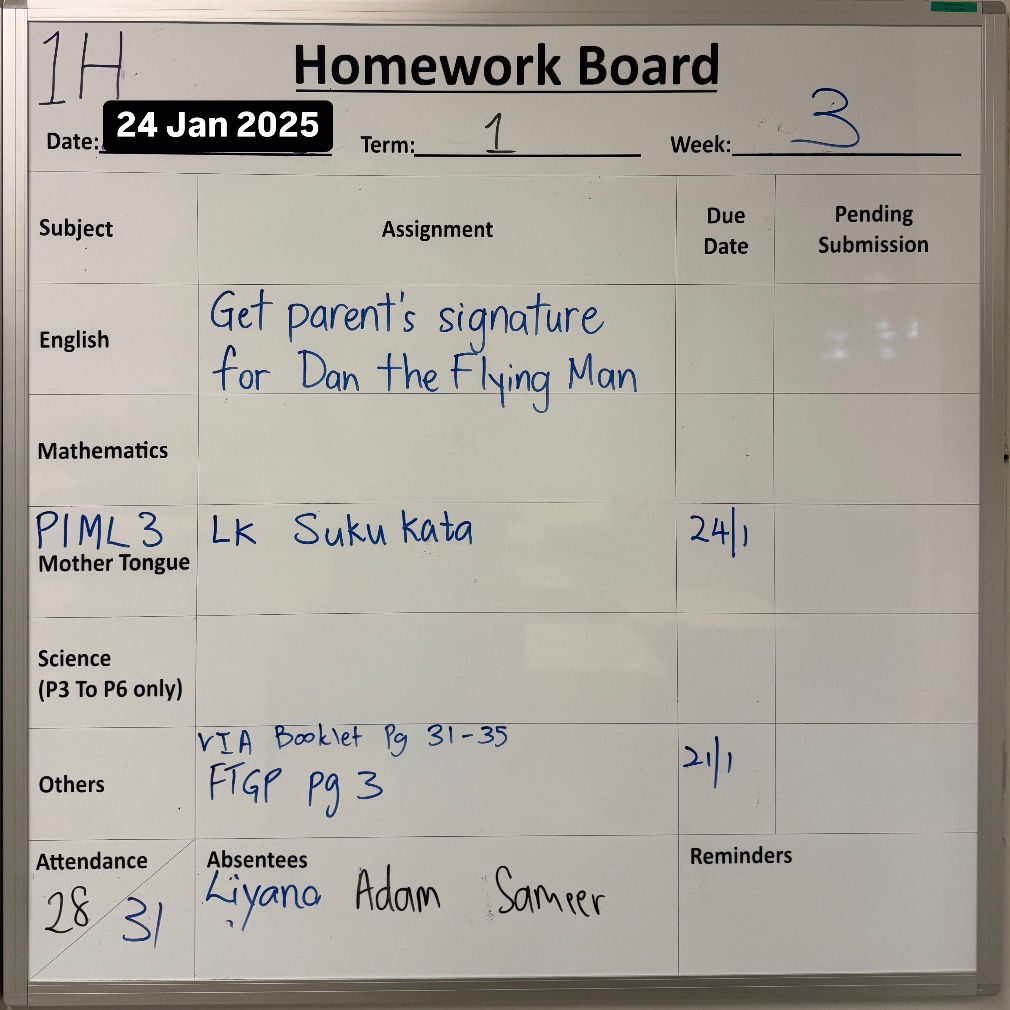 1H
Homework Board
Date: 24 Jan 2025 Term: 1 Week: 3
Subject Assignment Due Date Pending Submission
English Get parent's signature
for Dan the Flying Man
Mathematics
PIML 3 LK Suku kata 24/1
Mother Tongue
Science
(P3 To P6 only)
VIA Booklet Pg 31-35
Others FTGP pg 3 21/1
Attendance Absentees Reminders
28/31 Liyana Adam Sameer